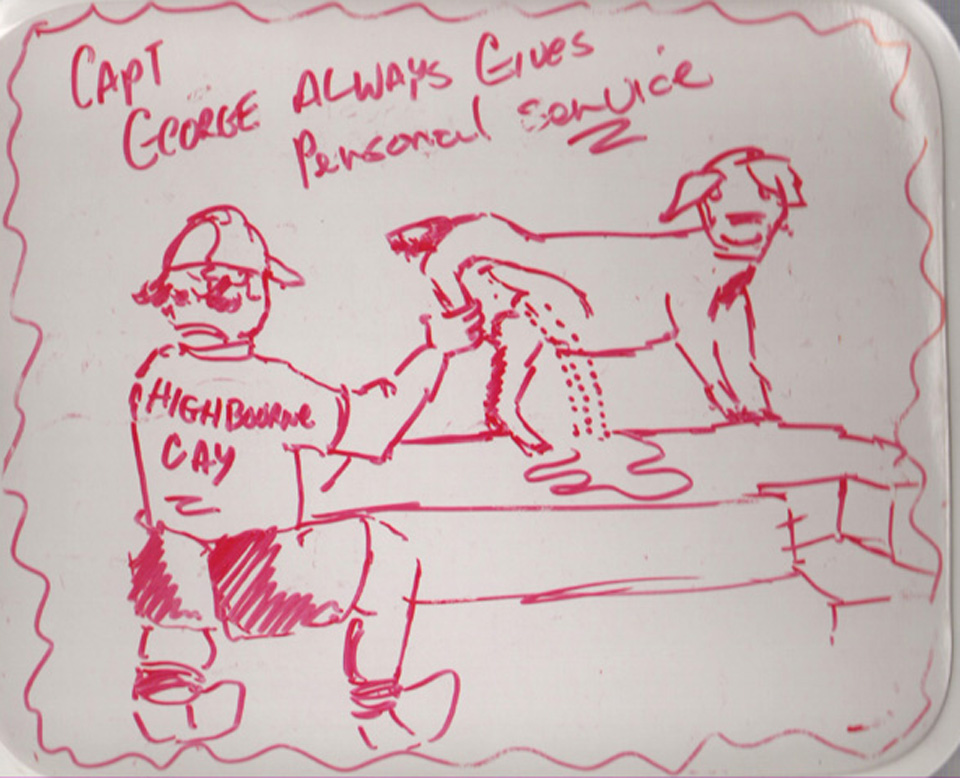 CAPT
GEORGE ALWAYS GIVES
Personal Service
HIGHBOURNE
CAY